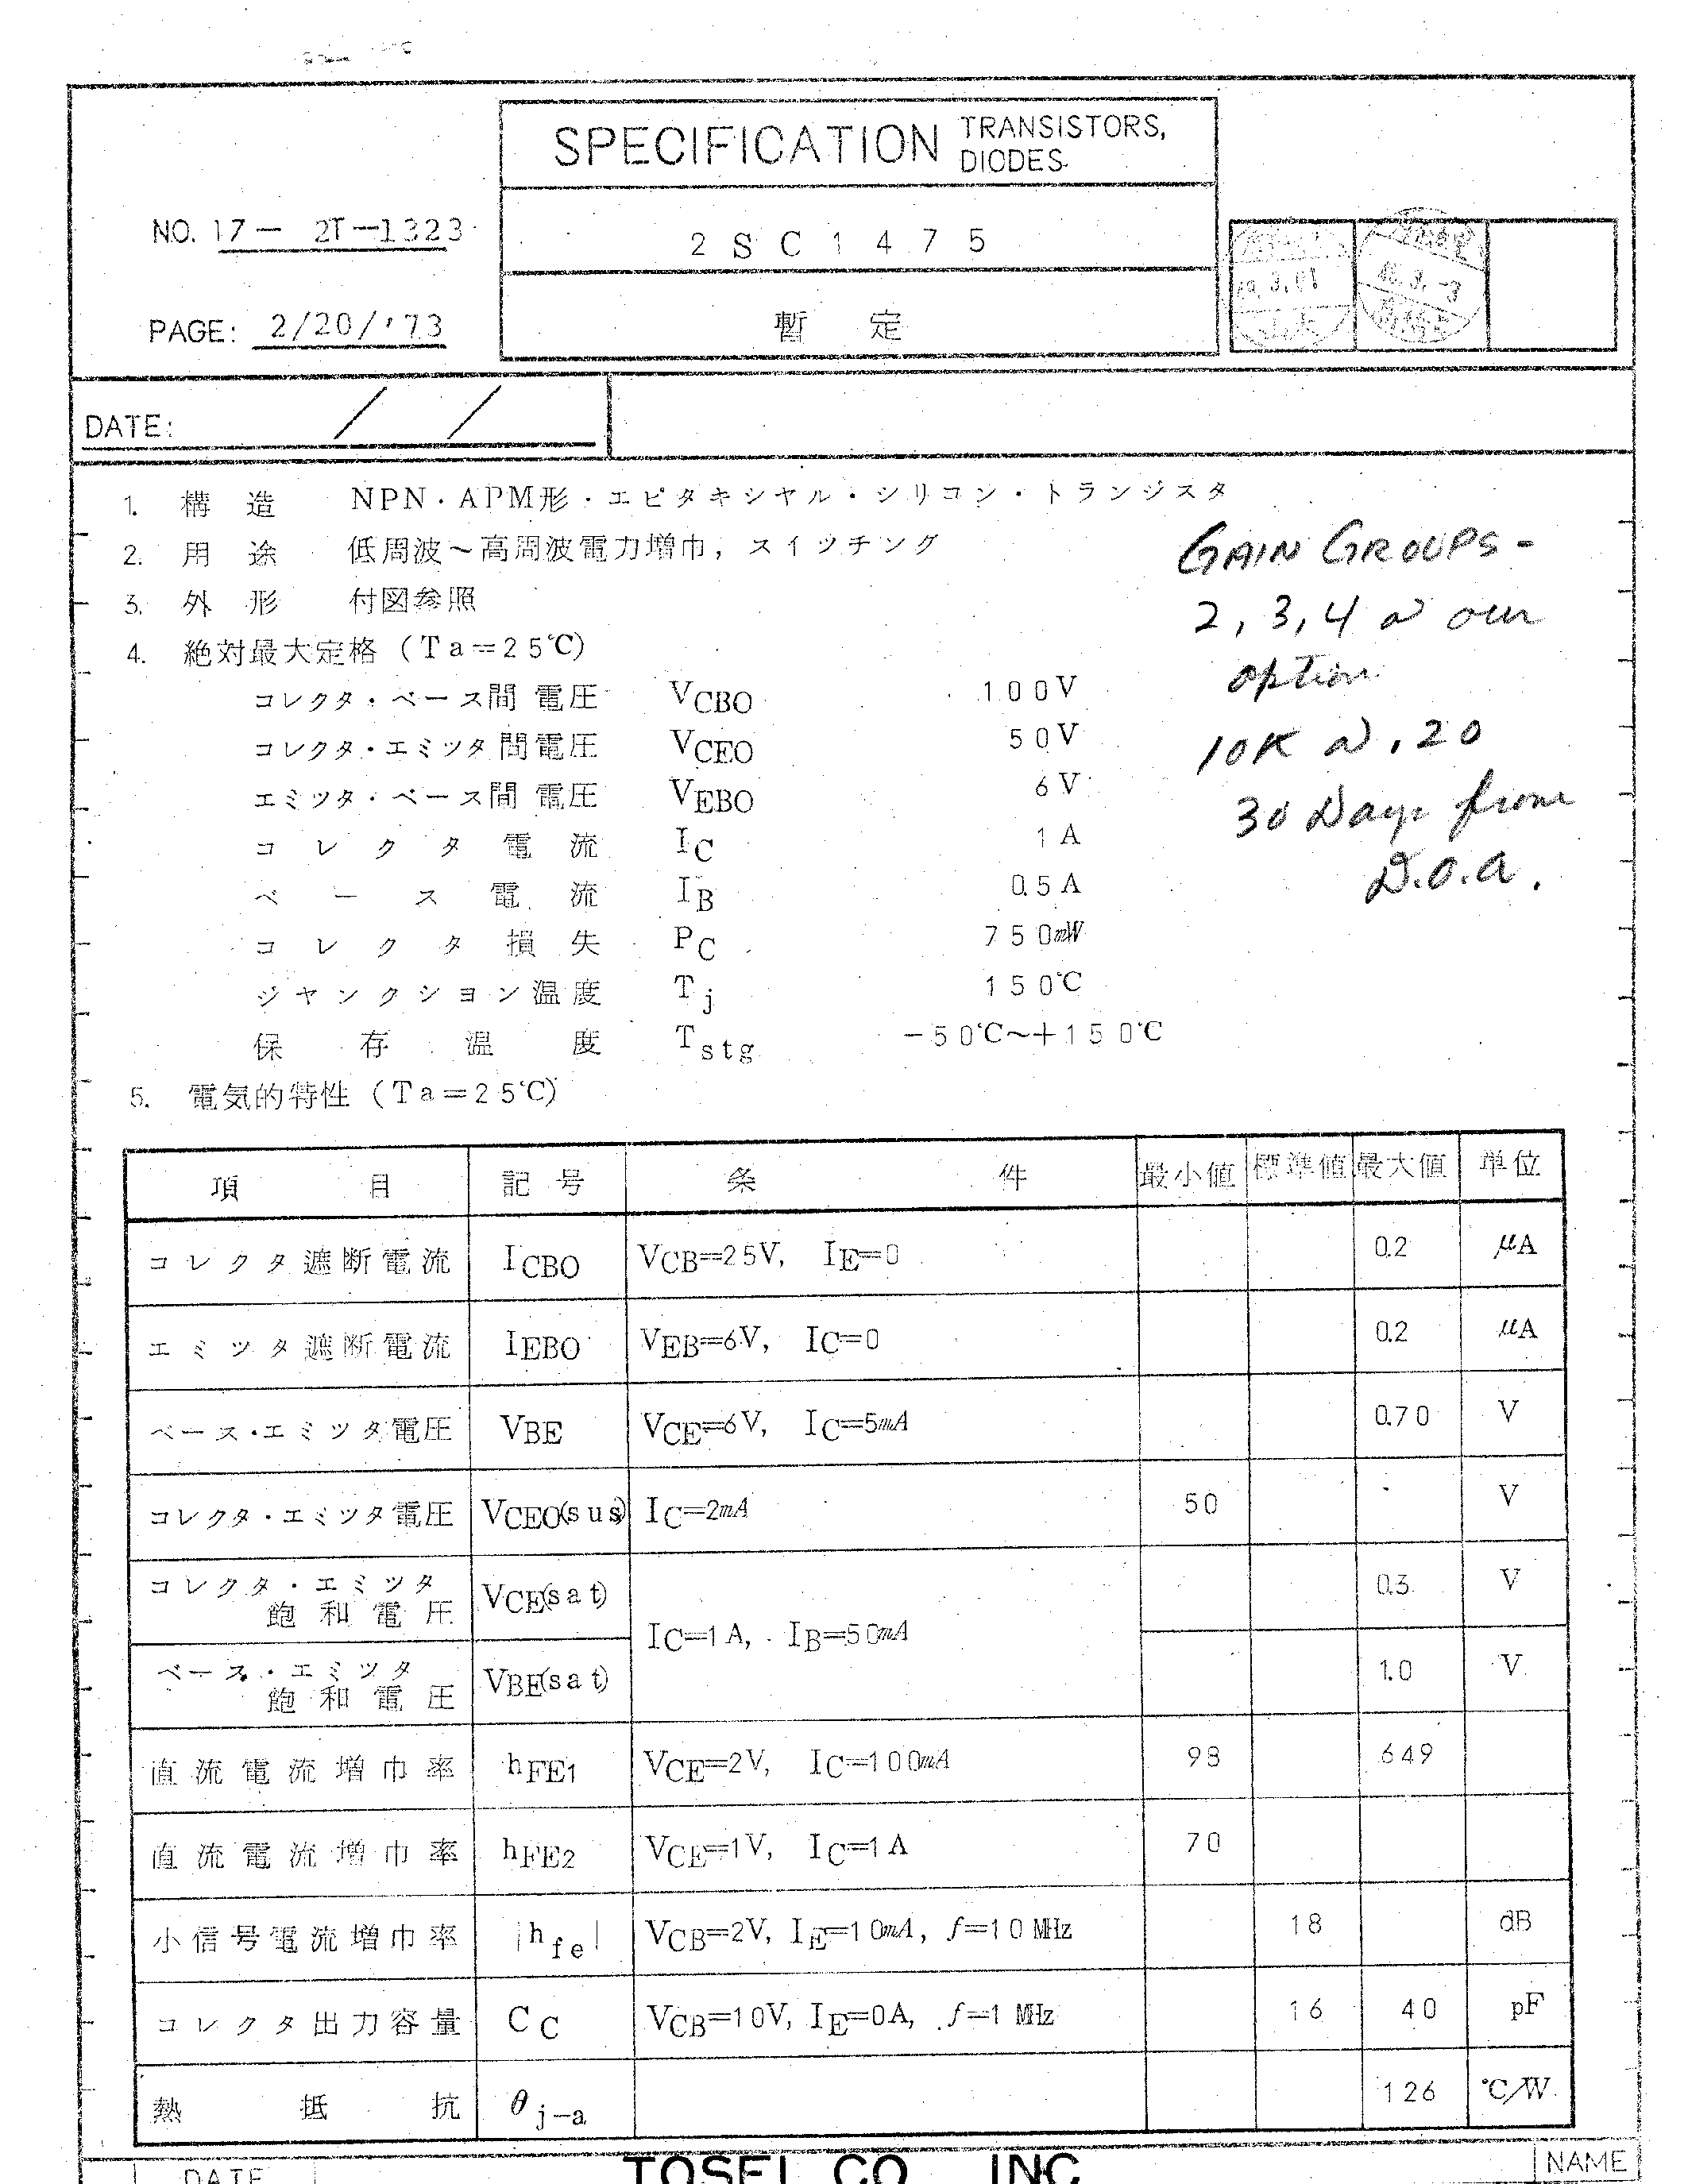 SPECIFICATION TRANSISTORS, DIODES
NO. 17— 2T—1323
2SC1475
PAGE: 2/20/'73
暫 定
DATE: / /
1. 構 造 NPN・APM形・エピタキシヤル・シリコン・トランジスタ
2. 用 途 低周波～高周波電力増巾，スイツチング
3. 外 形 付図参照
4. 絶対最大定格（Ta＝25℃）
コレクタ・ベース間電圧 VCBO 100V
コレクタ・エミツタ間電圧 VCEO 50V
エミツタ・ベース間電圧 VEBO 6V
コレクタ電流 IC 1A
ベース電流 IB 0.5A
コレクタ損失 PC 750mW
ジヤンクシヨン温度 Tj 150℃
保存温度 Tstg −50℃～＋150℃
GAIN GROUPS -
2, 3, 4 @ our
option
10K @ .20
30 Days from
D.O.A.
5. 電気的特性（Ta＝25℃）
項 目 記 号 条 件 最小値 標準値 最大値 単位
コレクタ遮断電流 ICBO VCB=25V, IE=0 0.2 μA
エミツタ遮断電流 IEBO VEB=6V, IC=0 0.2 μA
ベース・エミツタ電圧 VBE VCE=6V, IC=5mA 0.70 V
コレクタ・エミツタ電圧 VCEO(sus) IC=2mA 50 V
コレクタ・エミツタ飽和電圧 VCE(sat) IC=1A, IB=50mA 0.3 V
ベース・エミツタ飽和電圧 VBE(sat) 1.0 V
直流電流増巾率 hFE1 VCE=2V, IC=100mA 98 649
直流電流増巾率 hFE2 VCE=1V, IC=1A 70
小信号電流増巾率 |hfe| VCB=2V, IE=10mA, f=10MHz 18 dB
コレクタ出力容量 CC VCB=10V, IE=0A, f=1MHz 16 40 pF
熱 抵 抗 θj-a 126 ℃/W
DATE TOSEL CO. INC NAME